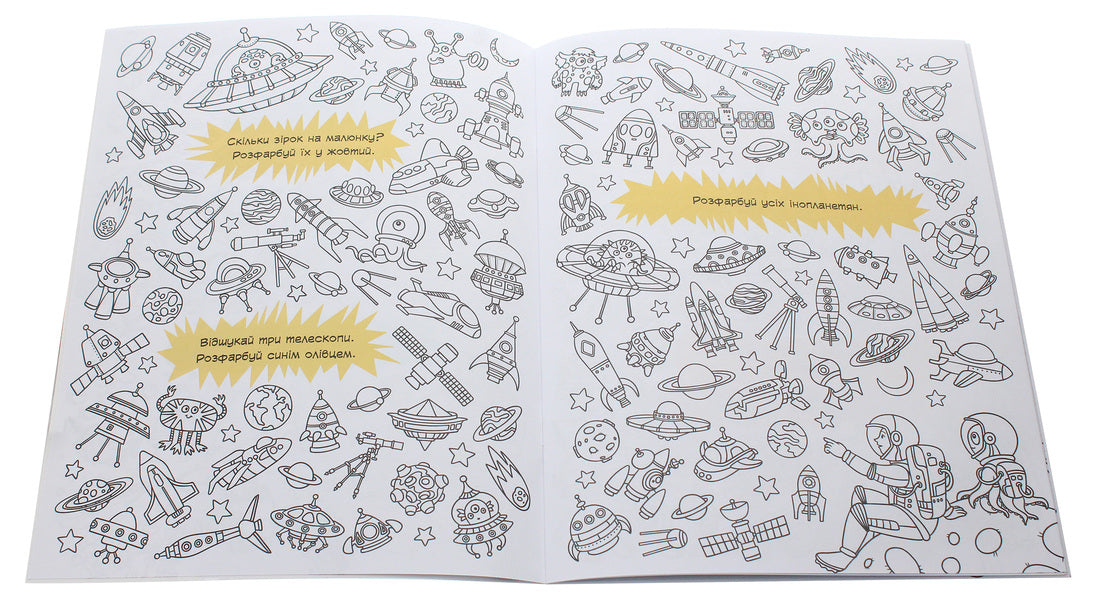 Скільки зірок на малюнку?
Розфарбуй їх у жовтий.
Відшукай три телескопи.
Розфарбуй синім олівцем.
Розфарбуй усіх інопланетян.